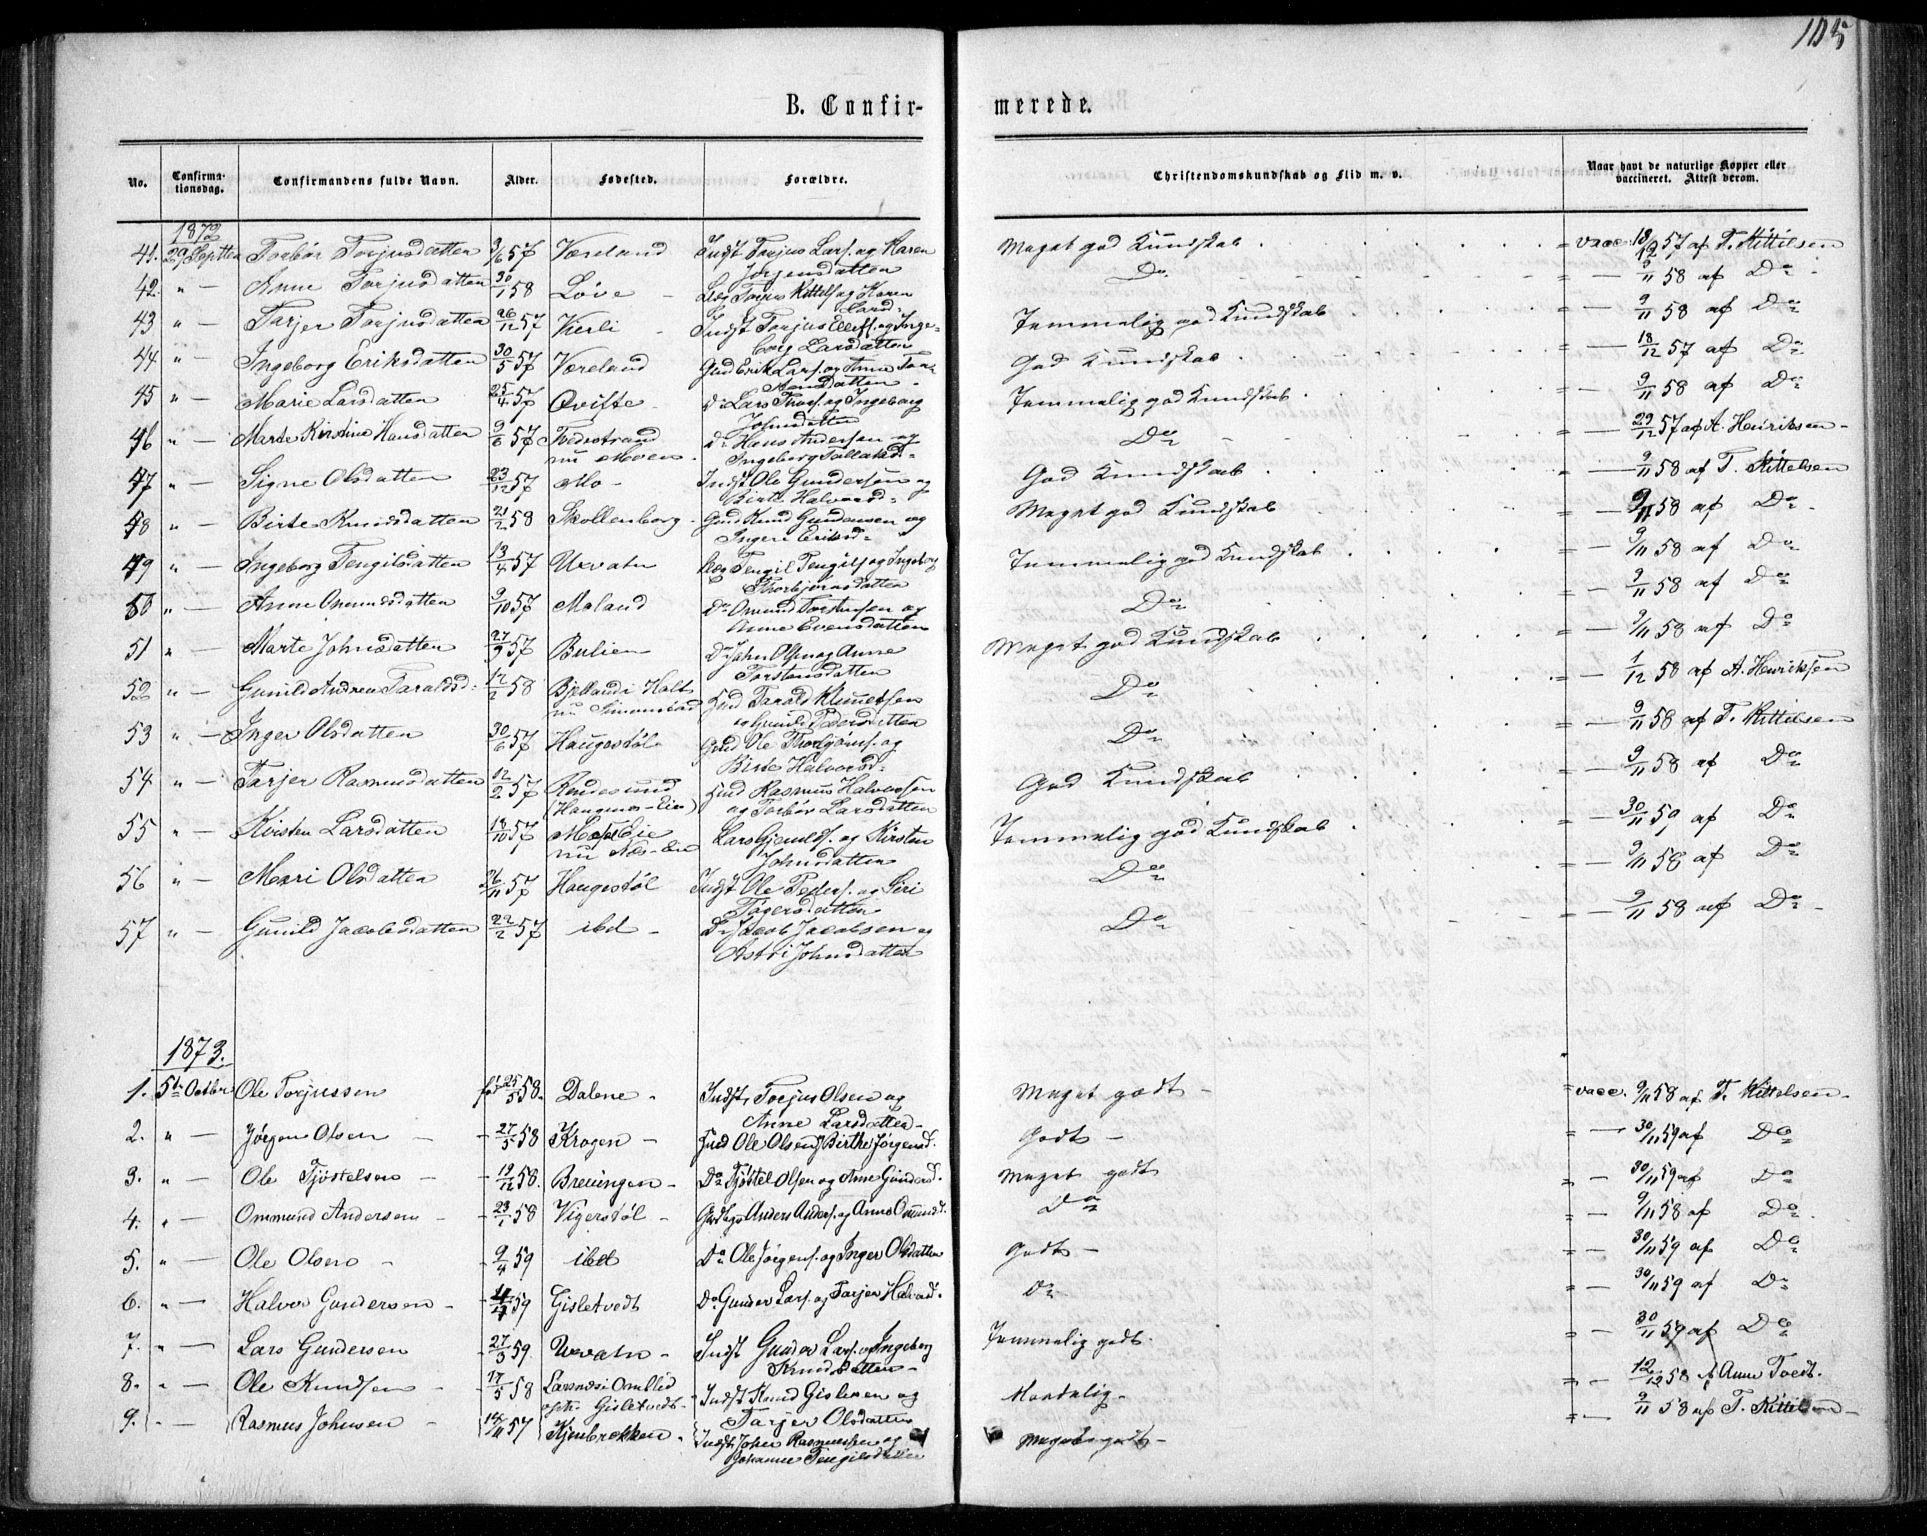 105
B. Confirmerede.
No. Confirmationsdag. Confirmandens fulde Navn. Alder. Fødested. Forældre. Christendomskundskab og Flid m. v. Naar havt de naturlige Kopper eller vaccineret. Attest derom.
1872
41. 29 Septbr Torbør Torjusdatten 3/6 57 Væreland Indst Torjus Lars. og Karen Jørgensdatten Meget god Kundskab = vacc. 18/12 57 af T. Kittilsen
42. " — Anne Torjusdatten 30/1 58 Løve Torjus Kittels og Karen Larsd. Do = — 9/11 58 af Do
43 " — Tarjer Torjusdatten 26/12 57 Vierli Indst Torjus Ellefs. og Ingeborg Larsdatten Temmelig god Kundskab = — 9/11 58 af Do
44 " — Ingeborg Eriksdatten 30/5 57 Væreland Gmd Erik Lars. og Anne God Kundskab = — 18/12 57 af Do
45 " — Marie Larsdatten 25/4 57 Qviste Do Lars Thors. og Ingeborg Johnsdatten Temmelig god Kundskab = — 9/11 58 af Do
46 " — Marte Kirstine Hansdatten 9/6 57 Tvedestrand nu Moen Do Hans Andersen og Ingeborg Tallaksd. Do = — 29/12 57 af A. Henriksen
47 " — Signe Olsdatten 23/12 57 Mo Indst Ole Gundersen og Birte Halvorsd. God Kundskab = — 9/11 58 af T. Kittelsen
48 " — Birte Knudsdatten 21/2 58 Skollenborg Gmd Knud Gundersen og Ingeri Eriksd. Meget god Kundskab = — 9/11 58 af Do
49 " — Ingeborg Tengilsdatten 13/4 57 Uvatn Tengil Tengils og Ingeborg Thorbjørnsdatten Temmelig god Kundskab = — 9/11 58 af Do
50 " — Anne Omundsdatten 9/10 57 Moland Do Omund Torstensen og Anne Evensdatten Do = — 9/11 58 af Do
51 " — Marte Johnsdatten 27/9 57 Bulien Do John Olsen og Anne Torstensdatten Meget god Kundskab = — 9/11 58 af Do
52 " — Gunild Andrea Taraldsd. 12/2 58 Bjelland i Holt nu Simonstad Gmd Tarald Klemetsen og Gunild Pedersdatten Do = — 1/12 58 af A. Henriksen
53 " — Inger Olsdatten 30/6 57 Haugestøl Gmd Ole Thorbjørns. og Birte Halvorsd. Do = — 9/11 58 af T. Kittilsen
54 " — Tarjer Rasmusdatten 12/2 57 Gmd Rasmus Halvorsen og Torbør Larsdatten God Kundskab = — 9/11 58 af Do
55 " — Kirsten Larsdatten 18/10 57 nu Næs-Eie Lars Gjerulds. og Kirsten Johnsdatten Temmelig god Kundskab = — 30/11 59 af Do
56 " — Mari Olsdatten 26/11 57 Haugestøl Indst Ole Peders. og Siri Tøgersdatten Do = — 9/11 58 af Do
57 " — Gunild Jacobsdatten 22/2 57 ibd Do Jacob Jacobsen og Astri Johnsdatten Do = — 9/11 58 af Do
1873.
1. 5te Octbr Ole Torjussen fød 25/5 58. Dalene Indst. Torjus Olsen og Anne Larsdatten Meget godt = vacc. 9/11 58 af T. Kittelsen
2. " — Jørgen Olsen 27/5 58 Krogen Gmd Ole Olsen og Birthe Jørgensd. Godt = — 30/11 59 af Do
3. " — Ole Tjøstelsen 19/12 58. Breuingen Do Tjøstel Olsen og Anne Gundersd. Meget godt = — 30/11 59 af Do
4. " — Ommund Andersen 23/1 58 Vigerstøl Anders Anders. og Anne Omundsd. Do = — 9/11 58 af Do
5. " — Ole Olsen 9/4 59 ibd Do Ole Jørgens. og Inger Olsdatten Godt = — 30/11 59 af Do
6. " — Halvor Gundersen 59 Gisletvedt Do Gunder Lars. og Tarjer Halvorsd. Do = — 30/11 59 af Do
7. " — Lars Gundersen 27/3 59. Uvatn Indst Gunder Lars. og Ingeborg Knudsdatten Temmelig godt = — 30/11 59 af Do
8. " — Ole Knudsen 17/5 58 Larsnæs i Omblid opf. Gisletvedt Indst Knud Gislesen og Tarjer Olsdatten Maadelig = — 12/12 58 af Anne Tvedt.
9. " — Rasmus Johnsen 14/11 57 Kjenbrækken Indst. John Rasmussen og Johanne Tengilsdatter Meget godt = — 9/11 58 af T. Kittelsen